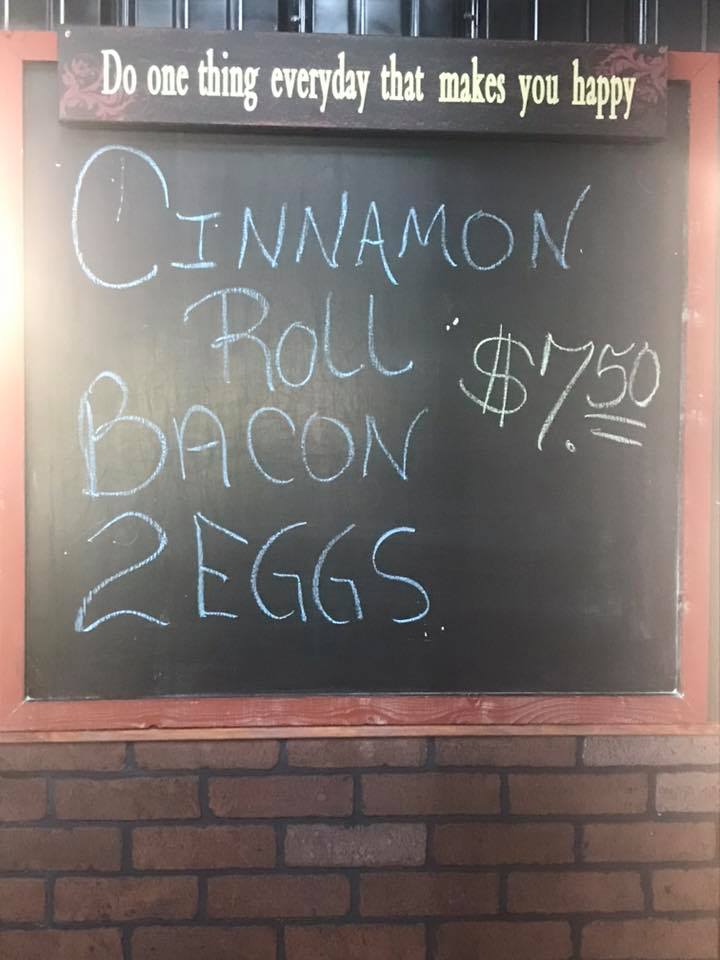 Do one thing everyday that makes you happy
CINNAMON
ROLL
$7.50
BACON
2 EGGS